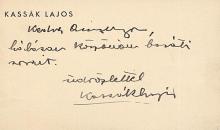 KASSÁK LAJOS
Kedves
hálásan köszönöm baráti
sorait.
üdvözlettel
Kassák Lajos